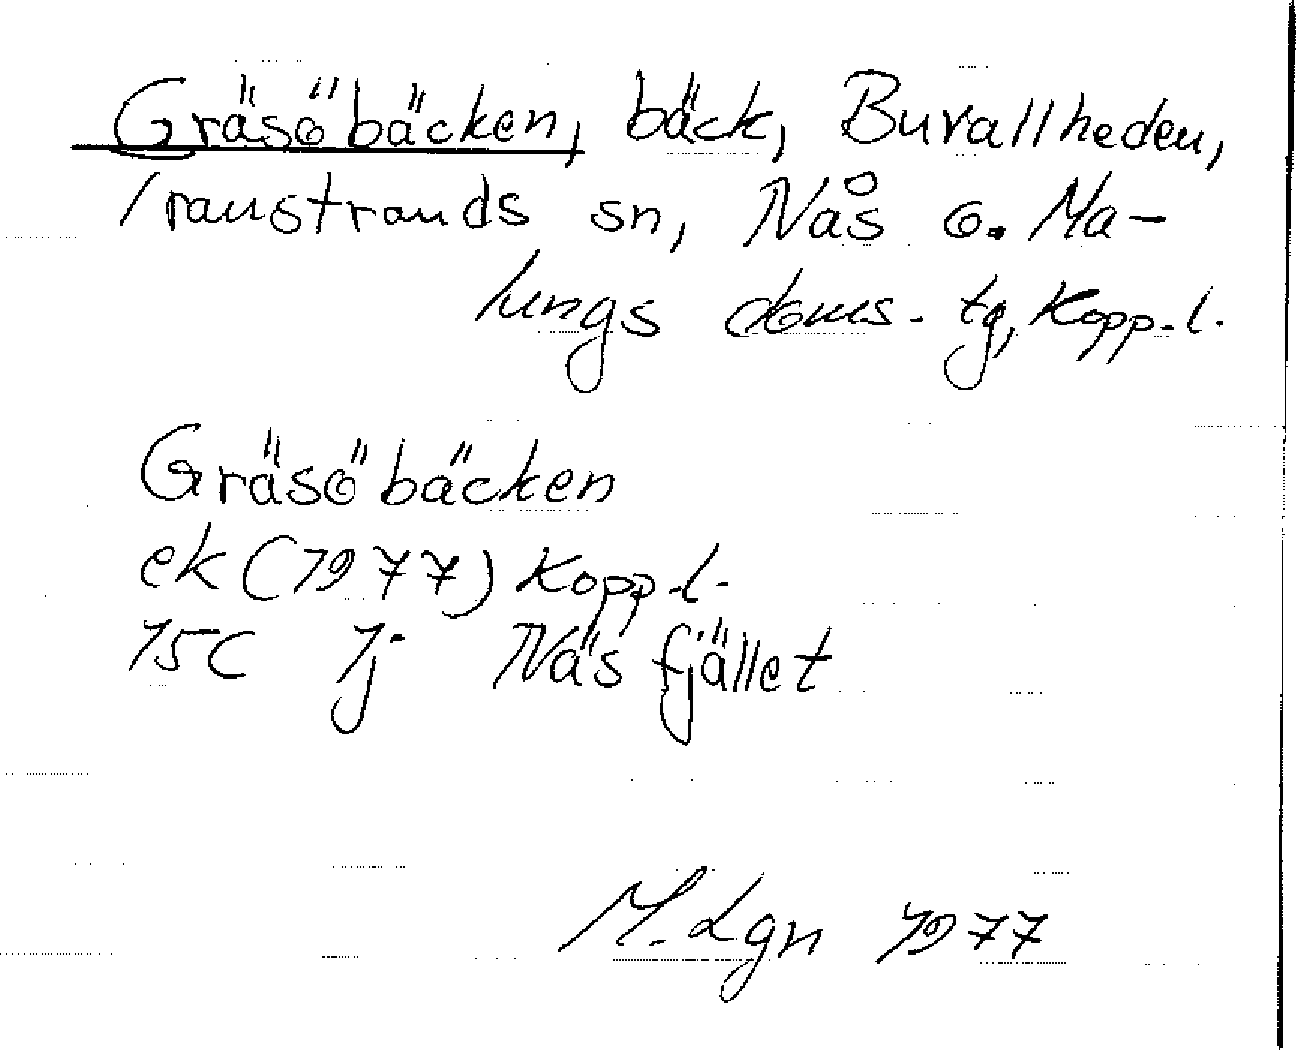 Gräsöbäcken, bäck, Burallheden,
Transtrands sn, Nås o. Ma-
lungs doms. tg, Kopp.l.
Gräsöbäcken
ek (1977) Kopp.l.
15C 1j Näsfjället
M. Lgn 1977